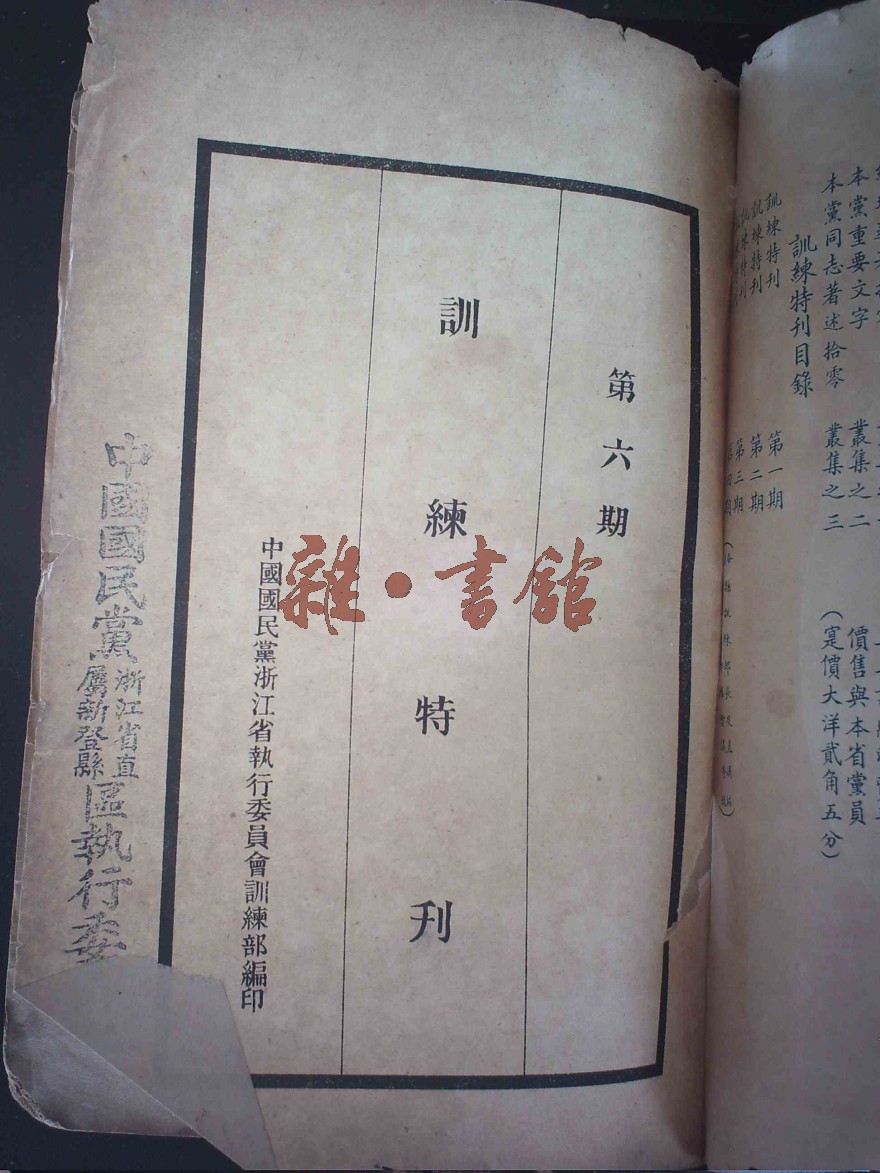 第六期
訓練特刊
中國國民黨浙江省執行委員會訓練部編印
中國國民黨浙江省直屬新登縣區執行委
雜·書館
本黨重要文字 叢集之二
價售與本省黨員
本黨同志著述拾零 叢集之三
(寔價大洋貳角五分)
訓練特刊目錄
訓練特刊 第一期
訓練特刊 第二期
第三期